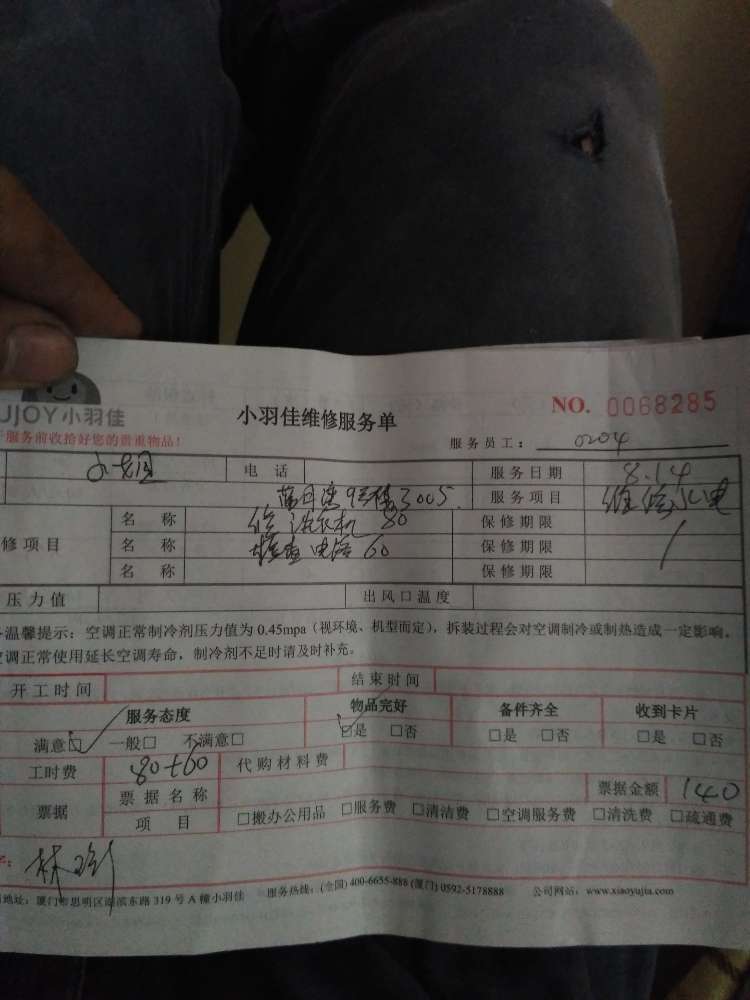 UJOY小羽佳
小羽佳维修服务单
NO. 0068285
服务前收拾好您的贵重物品!
服务员工: 0204
电话 服务日期 8.14
9号楼3005 服务项目 维修水电
名称 修洗衣机 80 保修期限
修项目 名称 检查电路 60 保修期限
名称 保修期限
压力值 出风口温度
温馨提示: 空调正常制冷剂压力值为 0.45mpa (视环境、机型而定), 拆装过程会对空调制冷或制热造成一定影响。
调正常使用延长空调寿命, 制冷剂不足时请及时补充。
开工时间 结束时间
服务态度 物品完好 备件齐全 收到卡片
满意□ 一般□ 不满意□ □是 □否 □是 □否 □是 □否
工时费 80+60 代购材料费
票据 票据名称 票据金额 140
项目 □搬办公用品 □服务费 □清洁费 □空调服务费 □清洗费 □疏通费
地址: 厦门市思明区湖滨东路 319 号 A 幢小羽佳 服务热线: (全国) 400-6655-888 (厦门) 0592-5178888 公司网站: www.xiaoyujia.com